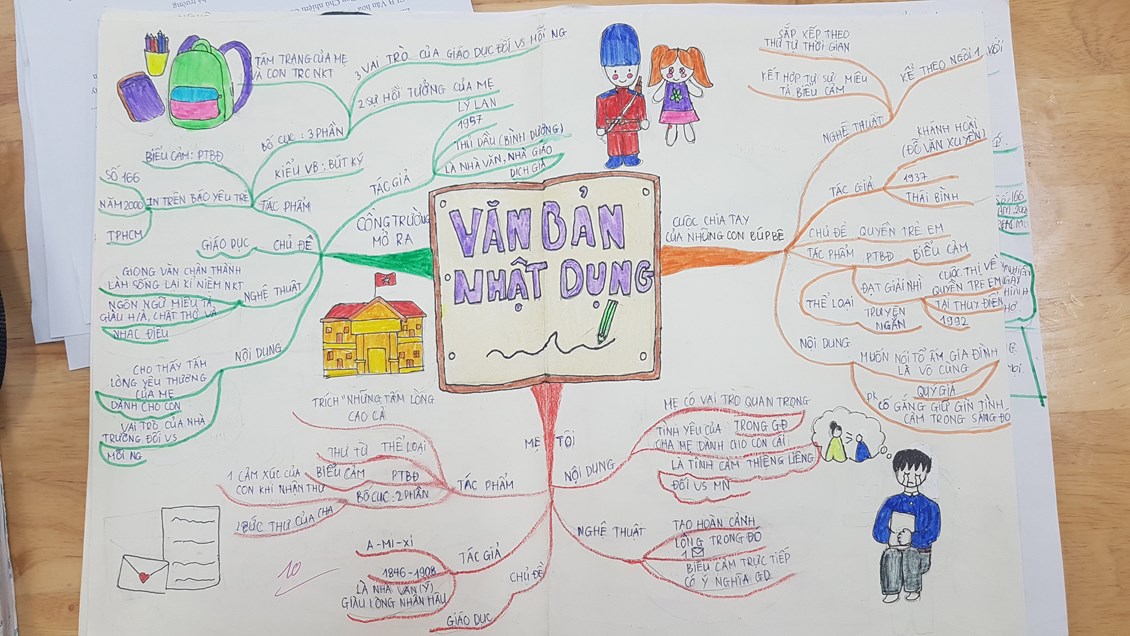 VĂN BẢN
NHẬT DỤNG
CỔNG TRƯỜNG
MỞ RA
TÁC GIẢ
LÝ LAN
1957
THỦ DẦU (BÌNH DƯƠNG)
LÀ NHÀ VĂN, NHÀ GIÁO
DỊCH GIẢ
TÁC PHẨM
BỐ CỤC: 3 PHẦN
TÂM TRẠNG CỦA MẸ
VÀ CON TRC NKT
2 SỰ HỒI TƯỞNG CỦA MẸ
3 VAI TRÒ CỦA GIÁO DỤC ĐỐI VS MỖI NG
KIỂU VB: BÚT KÝ
BIỂU CẢM: PTBĐ
IN TRÊN BÁO YÊU TRẺ
SỐ 166
NĂM 2000
TPHCM
CHỦ ĐỀ
GIÁO DỤC
NGHỆ THUẬT
GIỌNG VĂN CHÂN THÀNH
LÀM SỐNG LẠI KỈ NIỆM NKT
NGÔN NGỮ MIÊU TẢ
GIÀU H/Ả, CHẤT THƠ VÀ
NHẠC ĐIỆU
NỘI DUNG
CHO THẤY TẤM
LÒNG YÊU THƯƠNG
CỦA MẸ
DÀNH CHO CON
VAI TRÒ CỦA NHÀ
TRƯỜNG ĐỐI VS
MỖI NG
CUỘC CHIA TAY
CỦA NHỮNG CON BÚP BÊ
NGHỆ THUẬT
SẮP XẾP THEO
THỨ TỰ THỜI GIAN
KẾT HỢP TỰ SỰ MIÊU
TẢ BIỂU CẢM
KỂ THEO NGÔI 1
TÁC GIẢ
KHÁNH HOÀI
(ĐỖ VĂN XUYỀN)
1937
THÁI BÌNH
CHỦ ĐỀ QUYỀN TRẺ EM
TÁC PHẨM
PTBĐ BIỂU CẢM
ĐẠT GIẢI NHÌ
CUỘC THI VỀ
QUYỀN TRẺ EM
TẠI THỤY ĐIỂN
1992
THỂ LOẠI
TRUYỆN
NGẮN
NỘI DUNG
MUỐN NÓI TỔ ẤM GIA ĐÌNH
LÀ VÔ CÙNG
QUÝ GIÁ
PK
CỐ GẮNG GIỮ GÌN TÌNH
CẢM TRONG SÁNG ĐÓ
MẸ TÔI
TÁC PHẨM
TRÍCH "NHỮNG TẤM LÒNG
CAO CẢ
THƯ TỪ THỂ LOẠI
BIỂU CẢM PTBĐ
BỐ CỤC: 2 PHẦN
1 CẢM XÚC CỦA
CON KHI NHẬN THƯ
2 BỨC THƯ CỦA CHA
TÁC GIẢ
A-MI-XI
1846-1908
LÀ NHÀ VĂN (Ý)
GIÀU LÒNG NHÂN HẬU
CHỦ ĐỀ
GIÁO DỤC
NỘI DUNG
MẸ CÓ VAI TRÒ QUAN TRỌNG
TRONG GĐ
TÌNH YÊU CỦA
CHA MẸ DÀNH CHO CON CÁI
LÀ TÌNH CẢM THIÊNG LIÊNG
ĐỐI VS MN
NGHỆ THUẬT
TẠO HOÀN CẢNH
LỒNG TRONG ĐÓ
1
BIỂU CẢM TRỰC TIẾP
CÓ Ý NGHĨA GD
10